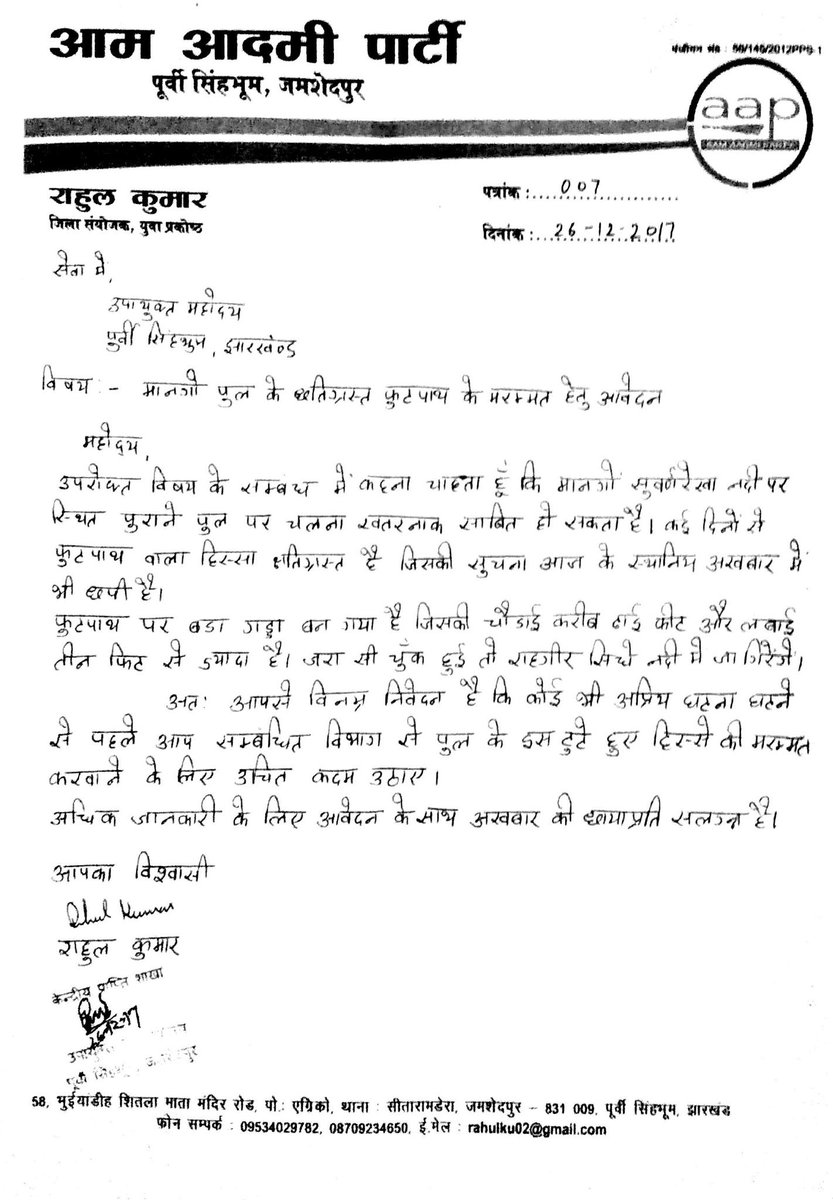 आम आदमी पार्टी
पूर्वी सिंहभूम, जमशेदपुर
पंजीयन सं० : 56/140/2012PPS-1
aap
AAM AADMI PARTY
राहुल कुमार
जिला संयोजक, युवा प्रकोष्ठ
पत्रांक : 007
दिनांक : 26-12-2017
सेवा में,
उपायुक्त महोदय
पुर्वी सिंहभुम, झारखंण्ड
विषय :- मानगो पुल के छतिग्रस्त फुटपाथ के मरम्मत हेतु आवेदन
महोद्य,
उपरोक्त विषय के सम्बंध में कहना चाहता हूँ कि मानगों सुवर्णरेखा नदी पर
स्थित पुराने पुल पर चलना खतरनाक साबित हो सकता है। कई दिनों से
फुटपाथ वाला हिस्सा क्षतिग्रस्त है जिसकी सुचना आज के स्थानिय अखबार में
भी छपी है।
फुटपाथ पर बडा गड्डा बन गया है जिसकी चौडाई करीब ढाई फीट और लंबाई
तीन फिट से ज्यादा है। जरा सी चुँक हुई तो राहगीर सिधे नदी मे जा गिरेंगे।
अतः आपसे विनम्र निवेदन है कि कोई भी अप्रिय घटना घटने
से पहले आप सम्बंधित विभाग से पुल के इस टुटे हुए हिस्से की मरम्मत
करवाने के लिए उचित कदम उठाए।
अधिक जानकारी के लिए आवेदन के साथ अखबार की छायाप्रति सलग्न है।
आपका विश्वासी
Rahul Kumar
राहुल कुमार
केन्द्रीय प्राप्ति शाखा
26-12-17
पूर्वी सिंहभूम, जमशेदपुर
58, मुईयांडीह शितला माता मंदिर रोड, पो.: एग्रिको, थाना : सीतारामडेरा, जमशेदपुर – 831 009, पूर्वी सिंहभूम, झारखंड
फोन सम्पर्क : 09534029782, 08709234650, ई.मेल : rahulku02@gmail.com